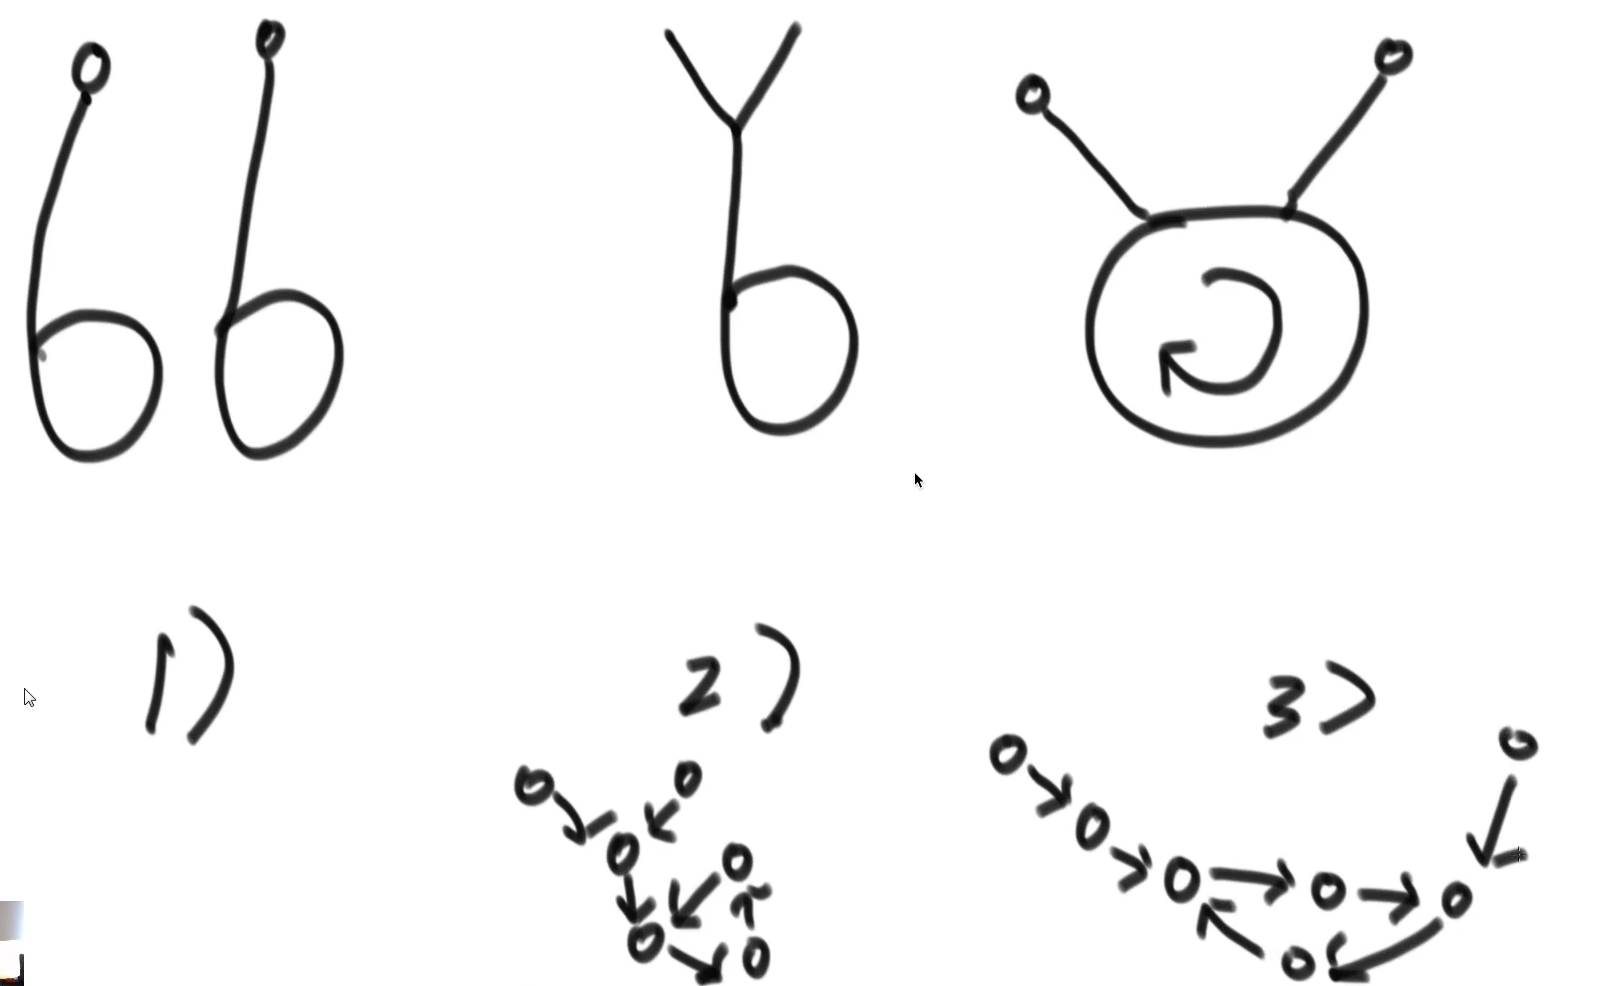 1) 2) 3)